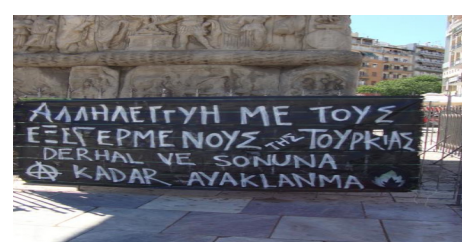 ΑΛΛΗΛΕΓΓΥΗ ΜΕ ΤΟΥΣ
ΕΞΕΓΕΡΜΕΝΟΥΣ ΤΗΣ ΤΟΥΡΚΙΑΣ
DERHAL VE SONUNA
KADAR AYAKLANMA